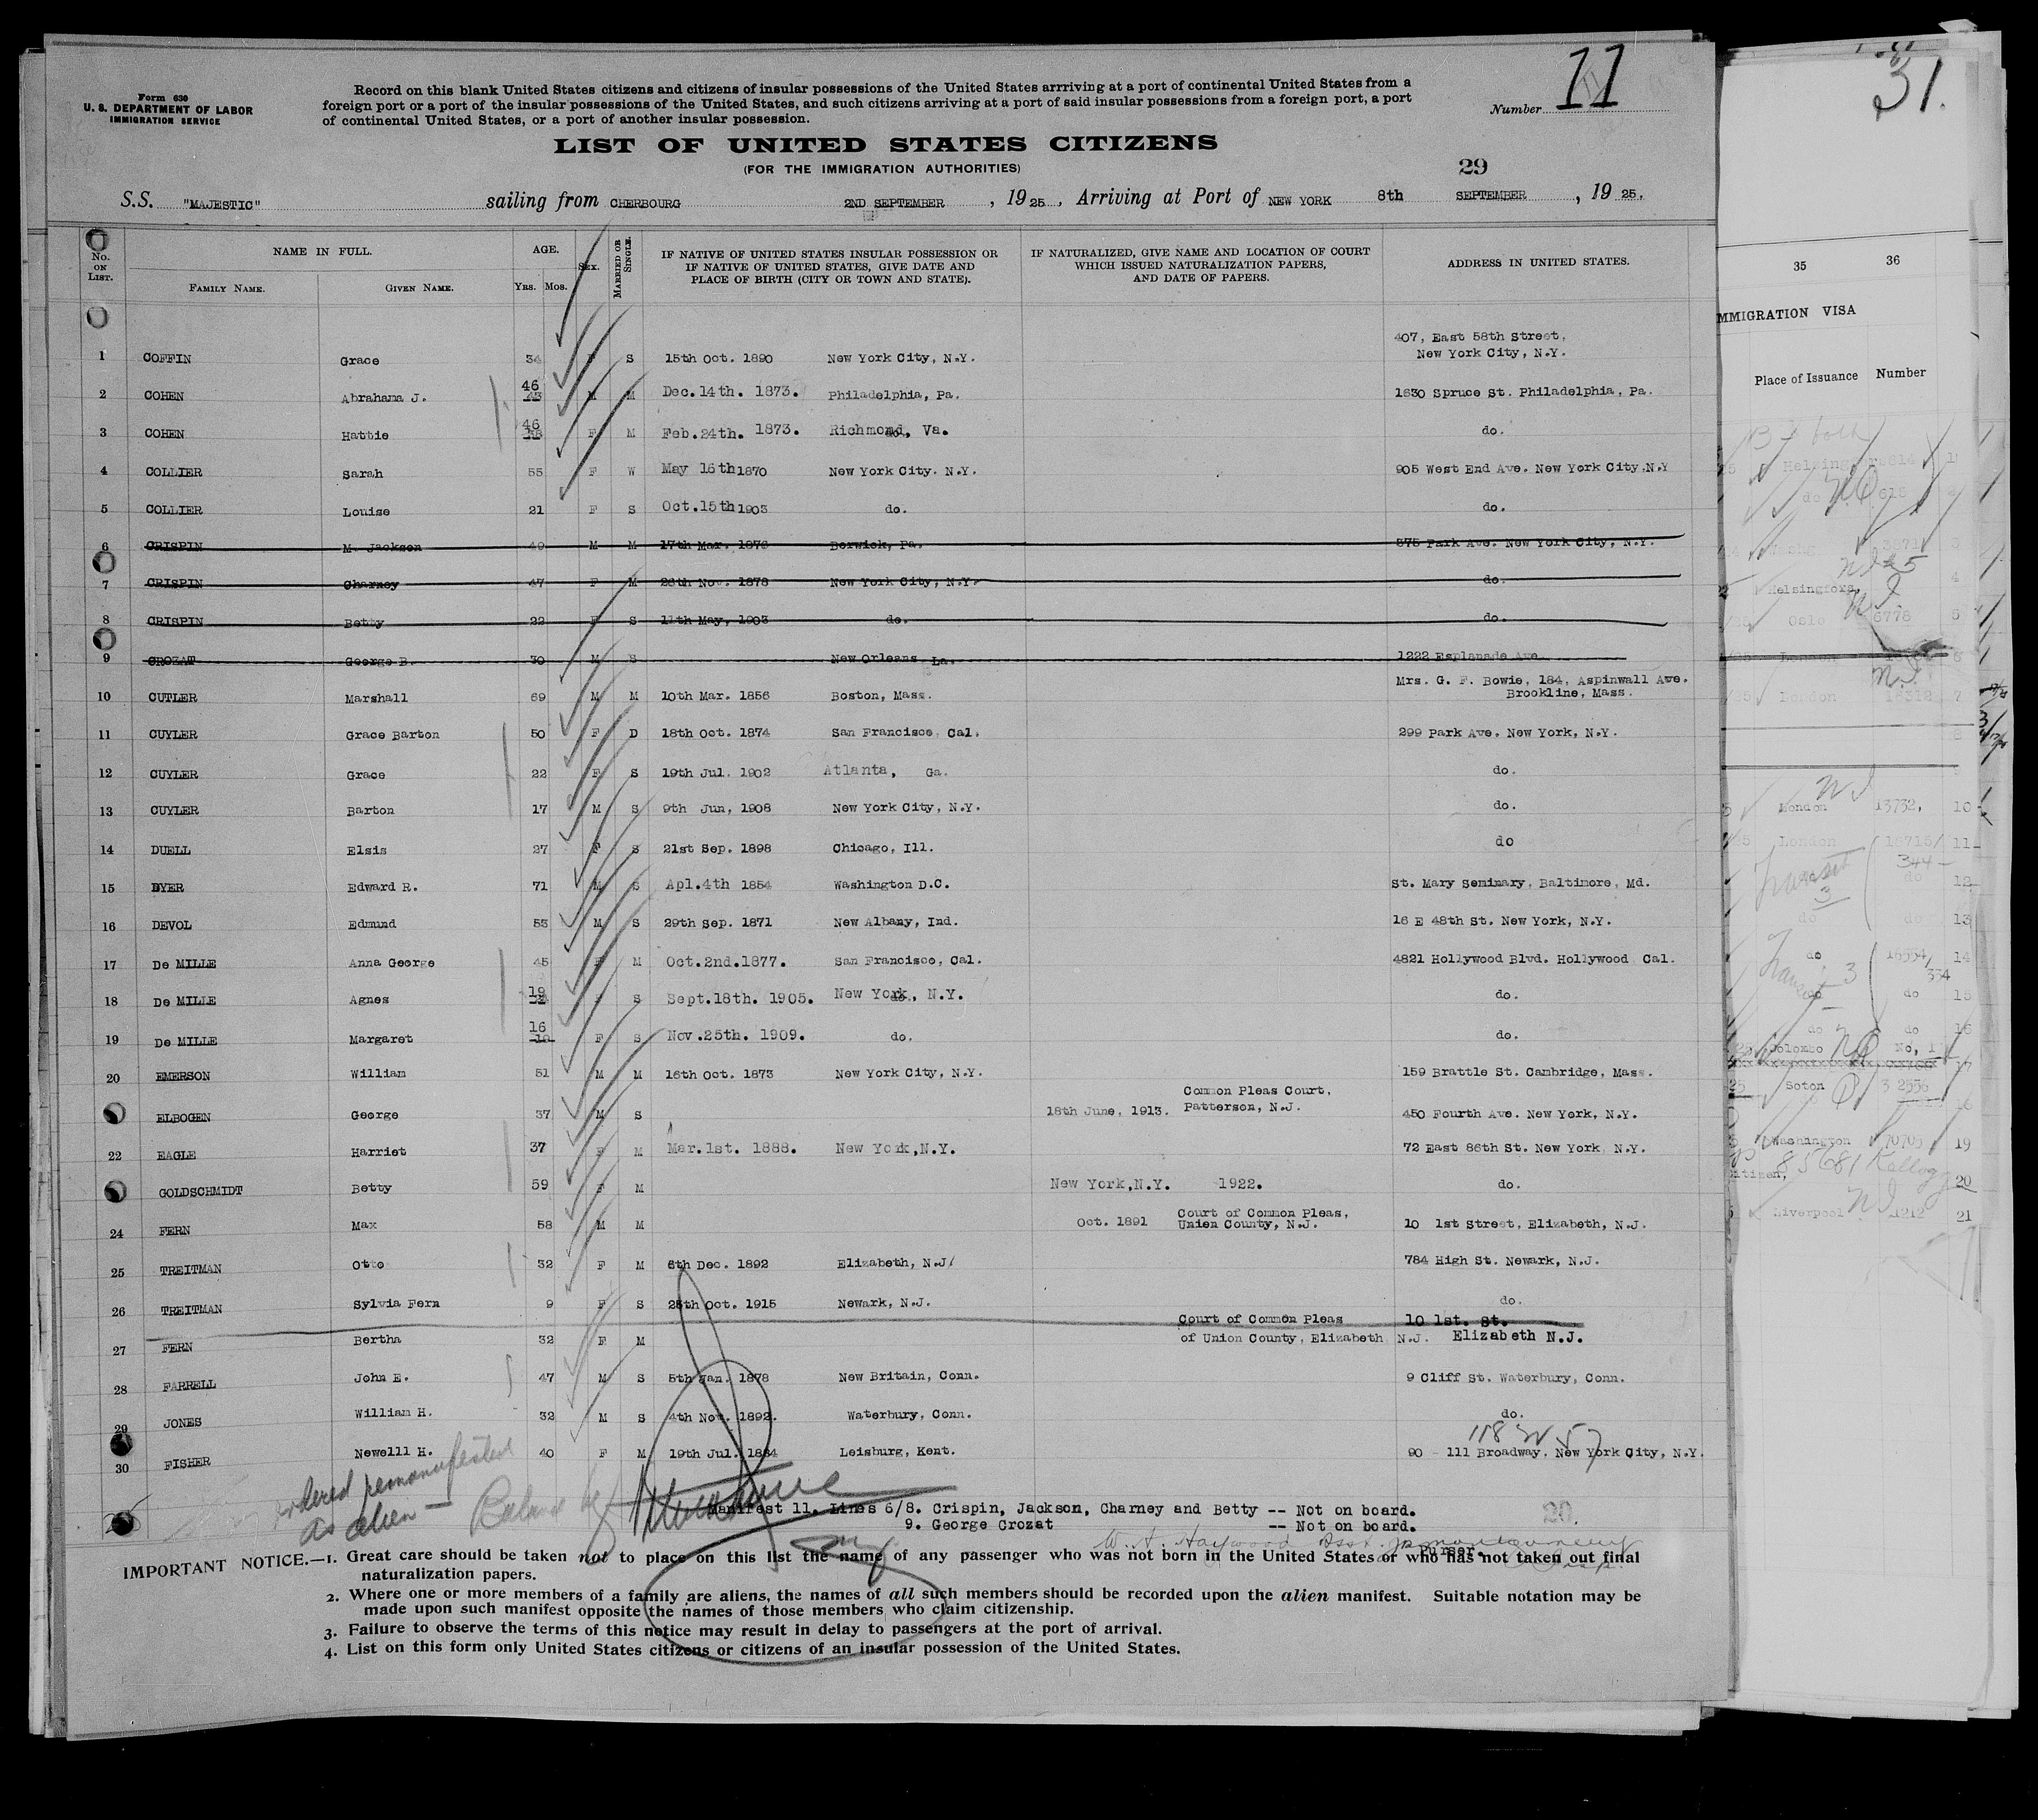 Form 630
U. S. DEPARTMENT OF LABOR
IMMIGRATION SERVICE
Record on this blank United States citizens and citizens of insular possessions of the United States arrriving at a port of continental United States from a
foreign port or a port of the insular possessions of the United States, and such citizens arriving at a port of said insular possessions from a foreign port, a port
of continental United States, or a port of another insular possession.
Number 11
LIST OF UNITED STATES CITIZENS
(FOR THE IMMIGRATION AUTHORITIES)
29
S.S. "MAJESTIC" sailing from CHERBOURG 2ND SEPTEMBER, 1925, Arriving at Port of NEW YORK 8th SEPTEMBER, 1925.
No. ON LIST.
NAME IN FULL.
FAMILY NAME. GIVEN NAME.
AGE.
YRS. MOS.
SEX.
MARRIED OR SINGLE.
IF NATIVE OF UNITED STATES INSULAR POSSESSION OR
IF NATIVE OF UNITED STATES, GIVE DATE AND
PLACE OF BIRTH (CITY OR TOWN AND STATE).
IF NATURALIZED, GIVE NAME AND LOCATION OF COURT
WHICH ISSUED NATURALIZATION PAPERS,
AND DATE OF PAPERS.
ADDRESS IN UNITED STATES.
407, East 58th Street,
1 COFFIN Grace 34 F S 15th Oct. 1890 New York City, N.Y. New York City, N.Y.
46
2 COHEN Abrahama J. 43 M M Dec.14th. 1873. Philadelphia, Pa. 1630 Spruce St. Philadelphia, Pa.
46
3 COHEN Hattie 38 F M Feb.24th. 1873. Richmond, Va. do.
4 COLLIER Sarah 55 F W May 16th 1870 New York City. N.Y. 905 West End Ave. New York City.N.Y
5 COLLIER Louise 21 F S Oct.15th 1903 do. do.
6 CRISPIN M. Jackson 49 M M 17th Mar. 1876 Berwick, Pa. 875 Park Ave. New York City, N.Y.
7 CRISPIN Charney 47 F M 26th Nov. 1878 New York City, N.Y. do.
8 CRISPIN Betty 22 F S 11th May, 1903 do. do.
9 CROZAT George B. 30 M S New Orleans La. 1222 Esplanade Ave
Mrs. G. F. Bowie, 184, Aspinwall Ave.
10 CUTLER Marshall 69 M M 10th Mar. 1856 Boston, Mass. Brookline, Mass.
11 CUYLER Grace Barton 50 F D 18th Oct. 1874 San Francisco, Cal. 299 Park Ave. New York, N.Y.
12 CUYLER Grace 22 F S 19th Jul. 1902 Atlanta, Ga. do.
13 CUYLER Barton 17 M S 9th Jun, 1908 New York City, N.Y. do.
14 DUELL Elsis 27 F S 21st Sep. 1898 Chicago, Ill. do
15 DYER Edward R. 71 M S Apl.4th 1854 Washington D.C. St. Mary Seminary, Baltimore, Md.
16 DEVOL Edmund 53 M S 29th Sep. 1871 New Albany, Ind. 16 E 48th St. New York, N.Y.
17 De MILLE Anna George 45 F M Oct.2nd.1877. San Francisco, Cal. 4821 Hollywood Blvd. Hollywood Cal.
19
18 De MILLE Agnes F S Sept.18th. 1905. New York, N.Y. do.
16
19 De MILLE Margaret F S Nov.25th. 1909. do. do.
20 EMERSON William 51 M M 16th Oct. 1873 New York City, N.Y. 159 Brattle St. Cambridge, Mass.
Common Pleas Court,
ELBOGEN George 37 M S 18th June, 1913. Patterson, N.J. 450 Fourth Ave. New York, N.Y.
22 EAGLE Harriet 37 F M Mar.1st. 1888. New York,N.Y. 72 East 86th St. New York N.Y.
GOLDSCHMIDT Betty 59 F M New York,N.Y. 1922. do.
Court of Common Pleas,
24 FERN Max 58 M M Oct. 1891 Union County, N.J. 10 1st Street, Elizabeth, N.J.
25 TREITMAN Otto 32 F M 6th Dec. 1892 Elizabeth, N.J. 784 High St. Newark, N.J.
26 TREITMAN Sylvia Fern 9 F S 25th Oct. 1915 Newark, N.J. do.
Court of Common Pleas 10 1st. St.
27 FERN Bertha 32 F M of Union County, Elizabeth N.J. Elizabeth N.J.
28 FARRELL John E. 47 M S 5th Jan. 1878 New Britain, Conn. 9 Cliff St. Waterbury, Conn.
29 JONES William H. 32 M S 4th Nov. 1892. Waterbury, Conn. do.
118 W 57
30 FISHER Newelll H. 40 F M 19th Jul. 1884 Leisburg, Kent. 90 - 111 Broadway, New York City, N.Y.
ordered remanifested
as alien —
Manifest 11. Lines 6/8. Crispin, Jackson, Charney and Betty -- Not on board.
9. George Crozat -- Not on board.
29.
W. H. Haywood Asst.
Purser.
IMPORTANT NOTICE.—1. Great care should be taken not to place on this list the name of any passenger who was not born in the United States or who has not taken out final
naturalization papers.
2. Where one or more members of a family are aliens, the names of all such members should be recorded upon the alien manifest. Suitable notation may be
made upon such manifest opposite the names of those members who claim citizenship.
3. Failure to observe the terms of this notice may result in delay to passengers at the port of arrival.
4. List on this form only United States citizens or citizens of an insular possession of the United States.
31.
35 36
IMMIGRATION VISA
Place of Issuance Number
Helsingfors
Oslo 6778
London
London 13732, 10
London 11
Transit 3 do 12
do do 13
do 14
Transit 3 334
do do 15
do do 16
Colombo No, 1
17
Soton
Washington 70705 19
85681 Kellogg 20
Liverpool 1212 21